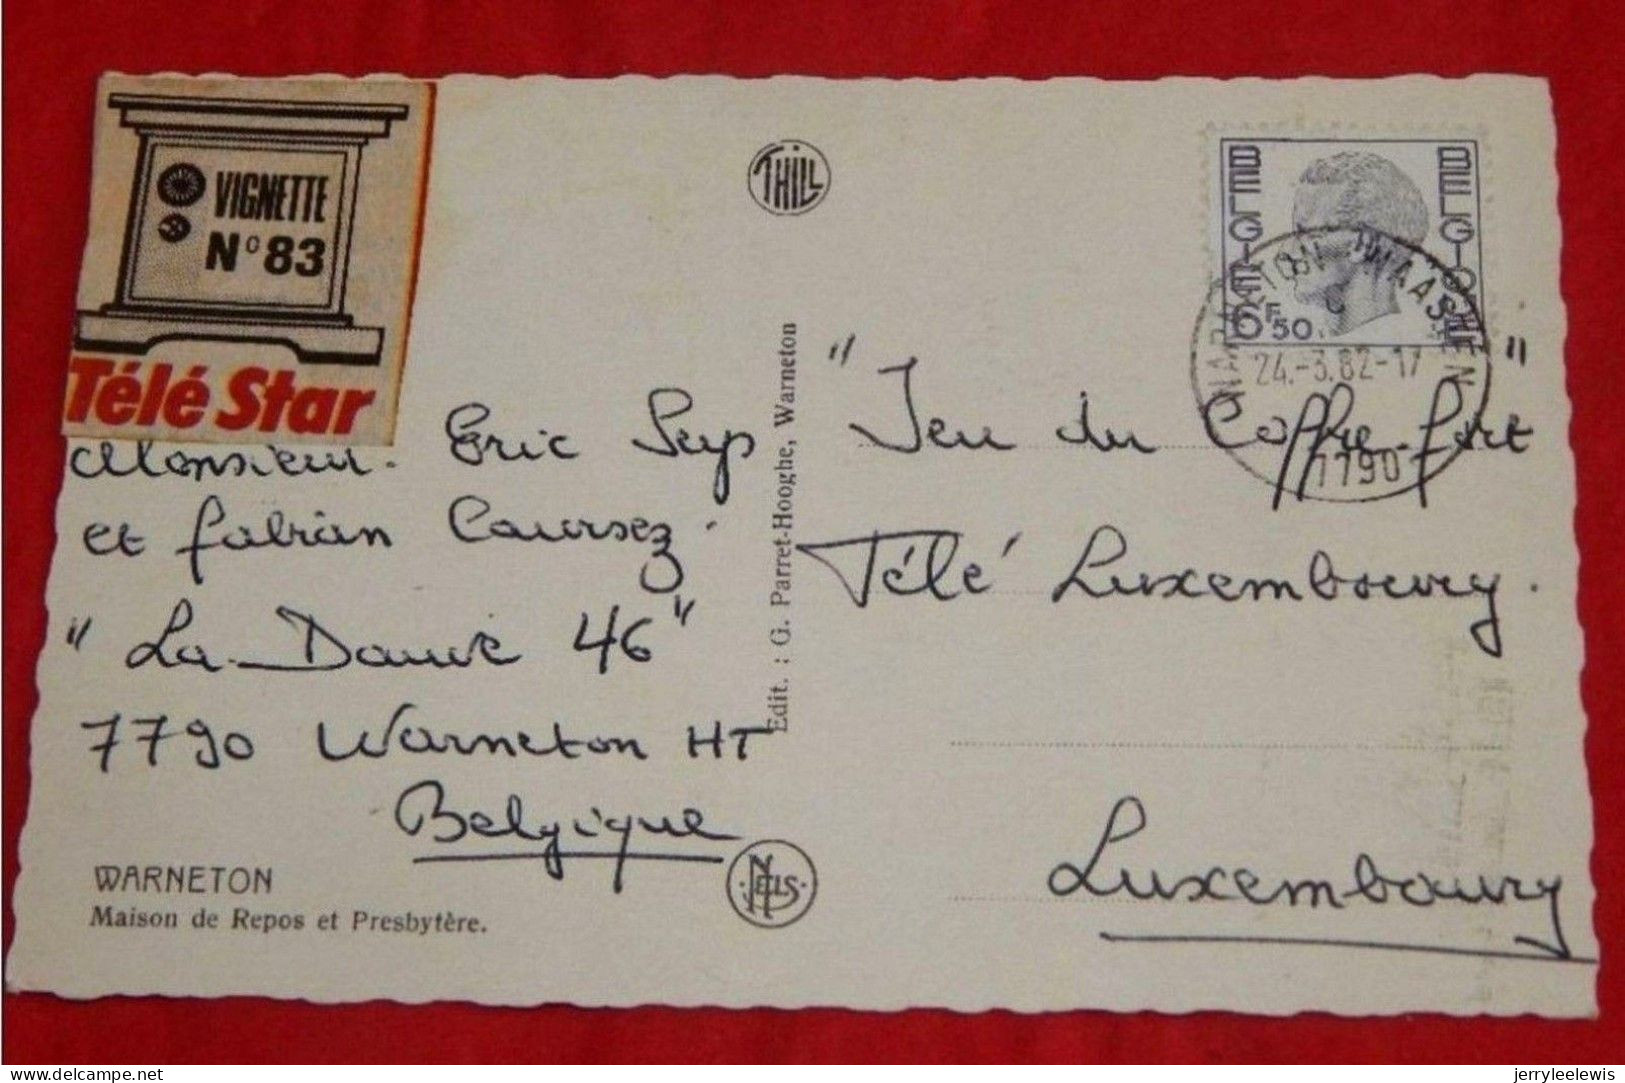 VIGNETTE
N° 83
Télé Star
Monsieur. Eric Seys
et Fabian Coursez.
"La Douve 46"
7790 Warneton HT
Belgique
WARNETON
Maison de Repos et Presbytère.
THILL
NELS
Edit. : G. Parret-Hooghe, Warneton
BELGIË
BELGIQUE
6F50
WARNETON WAASTEN
24.-3.82-17
7790
"Jeu du Coffre-fort"
Télé Luxembourg.
Luxembourg
delcampe.net
jerryleelewis